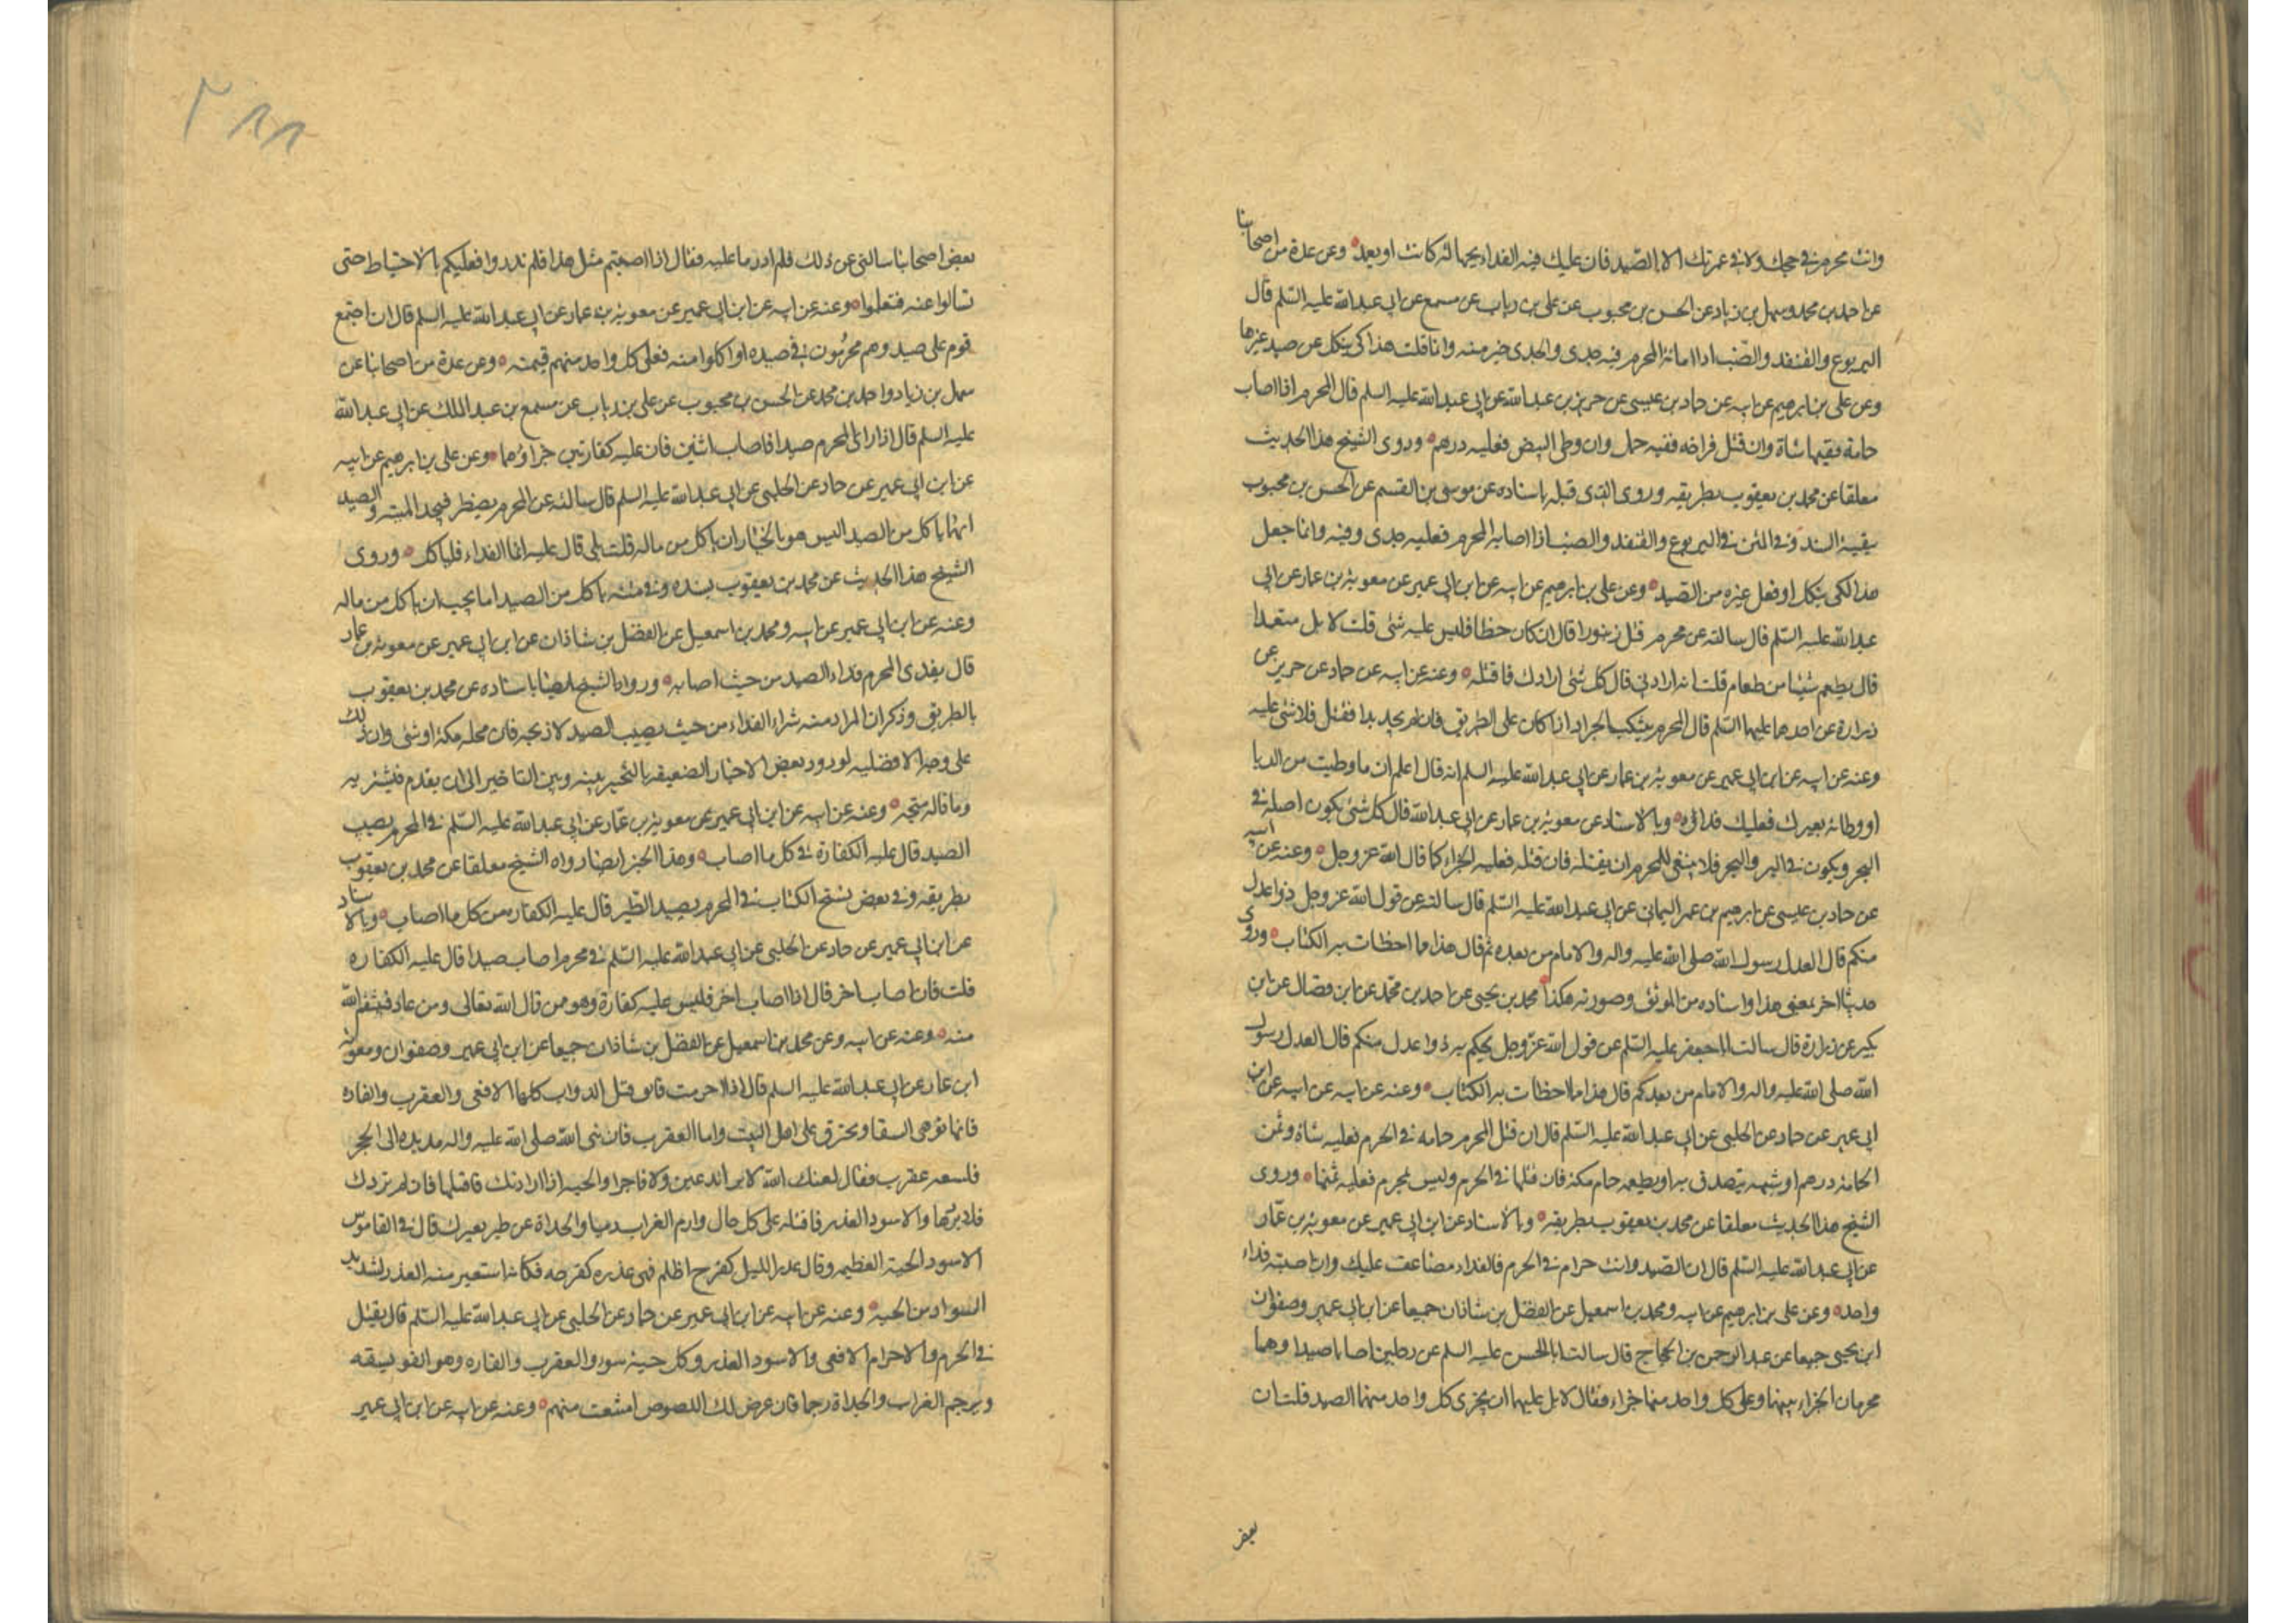 وانت محرم في حجك ولا في عمرتك الا الصيد فان عليك فيه الفداء بجهالة كانت او بعمد وعن عدة من اصحابنا
عن احمد بن محمد وسهل بن زياد عن الحسن بن محبوب عن علي بن رياب عن مسمع عن ابي عبد الله عليه السلم قال
اليربوع والقنفذ والضب اذا اماته المحرم فيه جدى والجدى خير منه وانما قلت هذا كي ينكل عن صيد غيرها
وعن علي بن ابرهيم عن ابيه عن حماد بن عيسى عن حريز بن عبد الله عن ابي عبد الله عليه السلم قال المحرم اذا اصاب
حمامة ففيها شاة وان قتل فراخه ففيه حمل وان وطى البيض فعليه درهم وروى الشيخ هذا الحديث
معلقا عن محمد بن يعقوب بطريقه وروى الذى قبله باسناده عن موسى بن القسم عن الحسن بن محبوب
بقية السند وفي المتن في اليربوع والقنفذ والضب اذا اصابه المحرم فعليه جدى وفيه وانما جعل
هذا لكي ينكل او فعل غيره من الصيد وعن علي بن ابرهيم عن ابيه عن ابن ابي عمير عن معوية بن عمار عن ابي
عبد الله عليه السلم قال سالته عن محرم قتل زنبورا قال ان كان خطا فليس عليه شئ قلت لا بل متعمدا
قال يطعم شيئا من طعام قلت انه ارادني قال كل شئ ارادك فاقتله وعنه عن ابيه عن حماد عن حريز عن
زرارة عن احدهما عليهما السلم قال المحرم يتنكب الجراد اذا كان على الطريق فان لم يجد بدا فقتل فلا شئ عليه
وعنه عن ابيه عن ابن ابي عمير عن معوية بن عمار عن ابي عبد الله عليه السلم انه قال اعلم ان ما وطيت من الدبا
او وطاته بعيرك فعليك فداؤه وبالاسناد عن معوية بن عمار عن ابي عبد الله قال كل شئ يكون اصله في
البحر ويكون في البر والبحر فلا ينبغي للمحرم ان يقتله فان قتله فعليه الجزاء كما قال الله عز وجل وعنه عن ابيه
عن حماد بن عيسى عن ابرهيم بن عمر اليماني عن ابي عبد الله عليه السلم قال سالته عن قول الله عز وجل ذوا عدل
منكم قال العدل رسول الله صلى الله عليه واله والامام من بعده ثم قال هذا مما اخطات به الكتاب وروى
حديثا اخر بمعنى هذا واسناده من الموثق وصورته هكذا محمد بن يحيى عن احمد بن محمد عن ابن فضال عن ابن
بكير عن زرارة قال سالت ابا جعفر عليه السلم عن قول الله عز وجل يحكم به ذوا عدل منكم قال العدل رسول
الله صلى الله عليه واله والامام من بعدكم قال هذا مما اخطات به الكتاب وعنه عن ابيه عن ابن
ابي عمير عن حماد عن الحلبي عن ابي عبد الله عليه السلم قال ان قتل المحرم حمامه في الحرم فعليه شاة وثمن
الحمامة درهم او شبهه يتصدق به او يطعمه حمام مكة فان قتلها في الحرم وليس بمحرم فعليه ثمنها وروى
الشيخ هذا الحديث معلقا عن محمد بن يعقوب بطريقه وبالاسناد عن ابن ابي عمير عن معوية بن عمار
عن ابي عبد الله عليه السلم قال ان الصيد وانت حرام في الحرم فالفداء مضاعف عليك وان اصبته فداء
واحد وعن علي بن ابرهيم عن ابيه ومحمد بن اسمعيل عن الفضل بن شاذان جميعا عن ابن ابي عمير وصفوان
ابن يحيى جميعا عن عبد الرحمن بن الحجاج قال سالت ابا الحسن عليه السلم عن رجلين اصابا صيدا وهما
محرمان الجزاء بينهما وعلى كل واحد منهما جزاء فقال لا بل عليهما ان يجزى كل واحد منهما الصيد قلت ان
بعض
٣٨٨
بعض اصحابنا سالني عن ذلك فلم ادر ما عليه فقال اذا اصبتم مثل هذا فلم تدروا فعليكم بالاحتياط حتى
تسالوا عنه فتعلموا وعنه عن ابيه عن ابن ابي عمير عن معوية بن عمار عن ابي عبد الله عليه السلم قال ان اجتمع
قوم على صيد وهم محرمون في صيده او اكلوا منه فعلى كل واحد منهم قيمته وعن عدة من اصحابنا عن
سهل بن زياد واحمد بن محمد عن الحسن بن محبوب عن علي بن رياب عن مسمع بن عبد الملك عن ابي عبد الله
عليه السلم قال اذا رمى المحرم صيدا فاصاب اثنين فان عليه كفارتين جزاؤهما وعن علي بن ابرهيم عن ابيه
عن ابن ابي عمير عن حماد عن الحلبي عن ابي عبد الله عليه السلم قال سالته عن المحرم يضطر فيجد الميتة والصيد
ايهما ياكل من الصيد اليس هو بالخيار ان ياكل من ماله قلت بلى قال عليه انما الفداء فلياكل وروى
الشيخ هذا الحديث عن محمد بن يعقوب بسنده وفي متنه ياكل من الصيد اما يجب ان ياكل من ماله
وعنه عن ابن ابي عمير عن ابيه ومحمد بن اسمعيل عن الفضل بن شاذان عن ابن ابي عمير عن معوية بن عمار
قال يفدى المحرم فداء الصيد من حيث اصابه ورواه الشيخ ايضا باسناده عن محمد بن يعقوب
بالطريق وذكر ان المراد منه شراء الفداء من حيث يصيب الصيد لا ذبحه فان محله مكة او منى وان ذلك
على وجه الافضلية لورود بعض الاخبار الضعيفة بالتخيير بينه وبين التاخير الى ان يقدم فيشتريه
وما قاله متجه وعنه عن ابيه عن ابن ابي عمير عن معوية بن عمار عن ابي عبد الله عليه السلم في المحرم يصيب
الصيد قال عليه الكفارة في كل ما اصاب وهذا الخبر ايضا رواه الشيخ معلقا عن محمد بن يعقوب
بطريقه وفي بعض نسخ الكتاب في المحرم يصيد الطير قال عليه الكفارة من كل ما اصاب وبالاسناد
عن ابن ابي عمير عن حماد عن الحلبي عن ابي عبد الله عليه السلم في محرم اصاب صيدا قال عليه الكفاره
قلت فان اصاب اخر قال اذا اصاب اخر فليس عليه كفارة وهو ممن قال الله تعالى ومن عاد فينتقم الله
منه وعنه عن ابيه وعن محمد بن اسمعيل عن الفضل بن شاذان جميعا عن ابن ابي عمير وصفوان ومعوية
ابن عمار عن ابي عبد الله عليه السلم قال اذا احرمت فاتق قتل الدواب كلها الا افعى والعقرب والفاره
فانها توهى السقا وتحرق على اهل البيت واما العقرب فان نبي الله صلى الله عليه واله مد يده الى الحجر
فلسعه عقرب فقال لعنك الله لا برا تدعين ولا فاجرا والحيه اذا ارادتك فاقتلها فان لم تردك
فلا تردها والاسود الغدر فاقتله على كل حال وارم الغراب رميا والحداة عن ظهر بعيرك قال في القاموس
الاسود الحية العظيمه وقال غدر الليل كفرح اظلم فهى غدره كفرحه فكانما استعير منه الغدر لشديد
السواد من الحيه وعنه عن ابيه عن ابن ابي عمير عن حماد عن الحلبي عن ابي عبد الله عليه السلم قال يقتل
في الحرم والاحرام الافعى والاسود الغدر وكل حية سوء والعقرب والفاره وهو الفويسقه
ويرجم الغراب والحداة رجما فان عرض لك اللصوص امتنعت منهم وعنه عن ابيه عن ابن ابي عمير